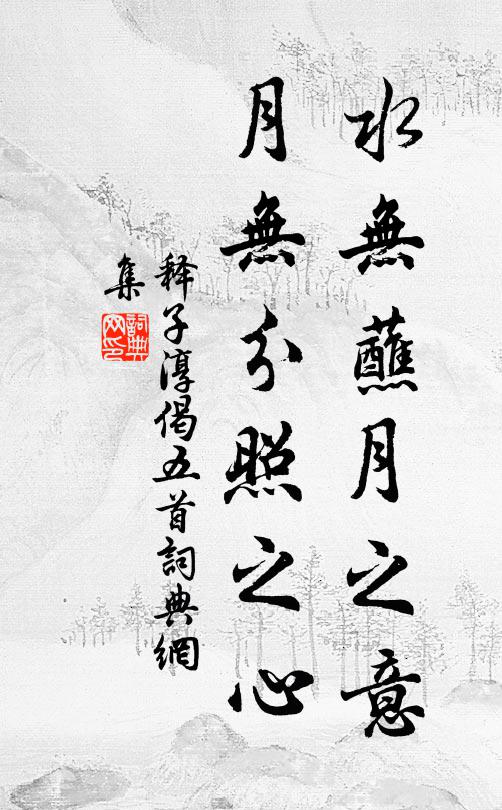 水無蘸月之意
月無分照之心
释子淳偈五首詞典網
集
詞典网印